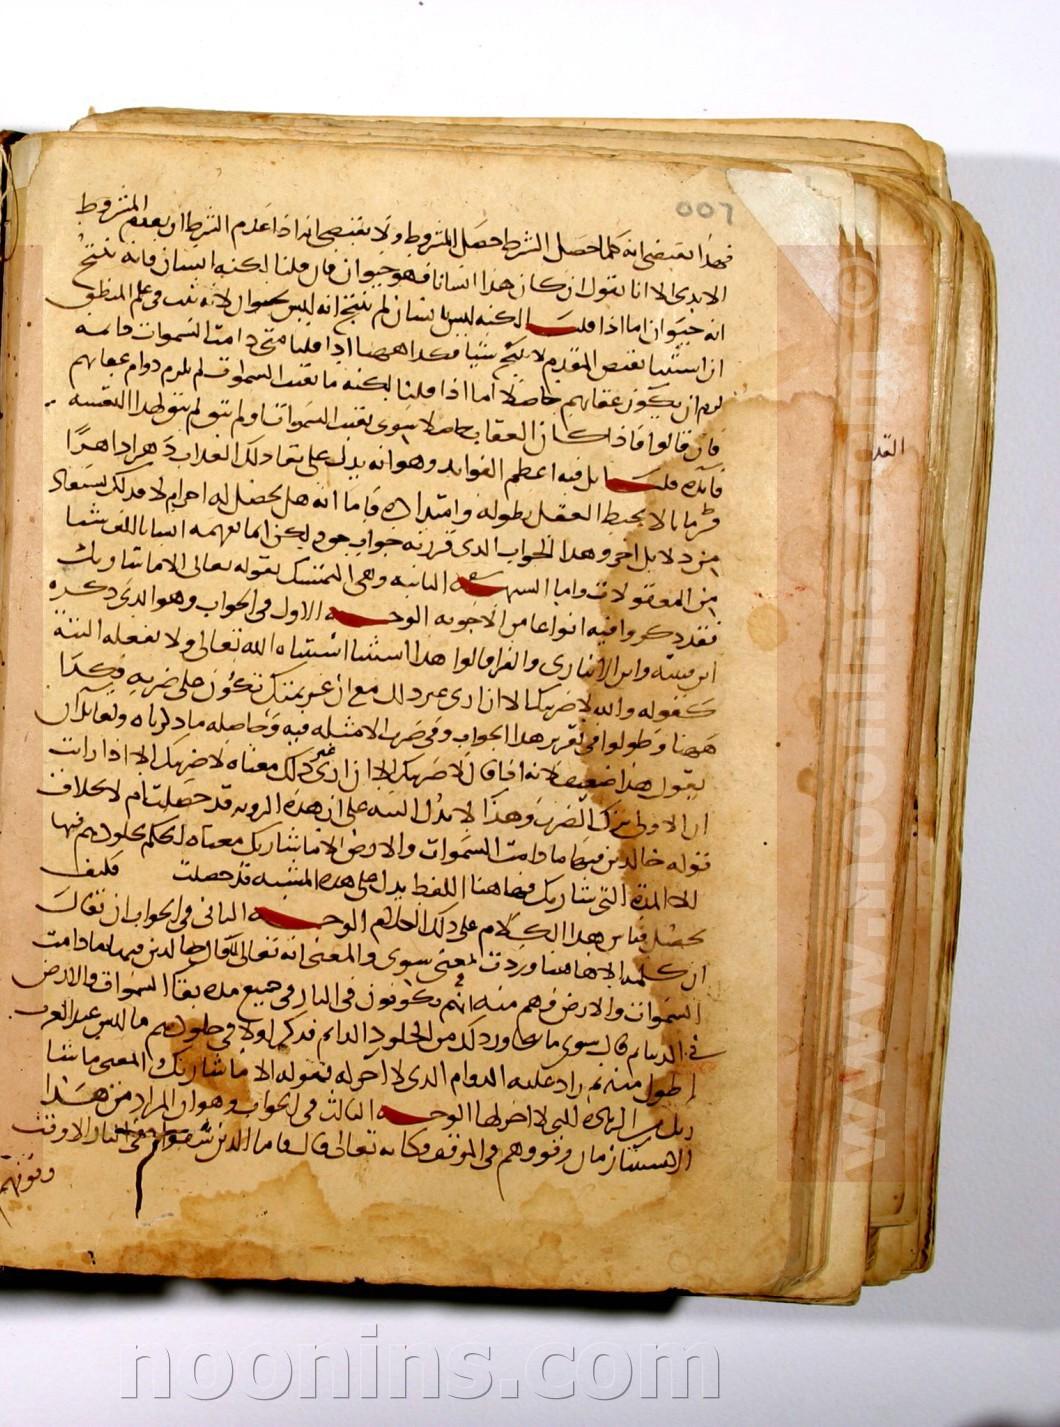 007
فهذا يقتضي انه كلما حصل الشرط حصل المشروط ولا يقتضي انه اذا عدم الشرط ان يعدم المشروط
الا ترى الا انا نقول ان كان هذا انسانا فهو حيوان فان قلنا لكنه انسان فانه ينتج
انه حيوان اما اذا قلنا لكنه ليس بانسان لم ينتج انه ليس بحيوان لانه ثبت في علم المنطق
ان استثنا نقيض المقدم لا ينتج شيا فكذا ههنا اذا قلنا متى دامت السموات دايمه
لزم ان يكون عقابهم حاصلا اما اذا قلنا لكنه ما بقيت السموات لم يلزم دوام عقابهم
فان قالوا فاذا كان العقاب حاصلا سوى بقيت السموات او لم تبق لم يبق لهذا التقسيم
فايده قلنا بل فيه اعظم الفوايد وهو انه يدل على بقا ذلك العذاب دهرا داهرا
وزمانا لا يحيط العقل بطوله وامتداده فاما انه هل يحصل له اخر ام لا فذلك يستفاد
من دلايل اخر وهذا الجواب الذي قررته جواب حق ولكن انما يفهمه انسان الف شيا
من المعقولات واما الشبهه الثانيه وهي التمسك بقوله تعالى الا ما شا ربك
فقد ذكروا فيه انواعا من الاجوبه الوجه الاول في الجواب وهو الذي ذكره
ابن قتيبه وابن الانباري والفرا قالوا هذا استثنا استثناه الله تعالى ولا يفعله البته
كقوله والله لاضربنك الا ان ارى غير ذلك مع ان عزيمتك تكون على ضربه فكذا
ههنا وطولوا في تقرير هذا الجواب وفي ضرب الامثله فيه وحاصله ما ذكرناه ولقايل ان
يقول هذا ضعيف لانه اذا قال لاضربنك الا ان ارى غير ذلك معناه لاضربنك الا اذا رايت
ان الاولى ترك الضرب وهذا لا يدل البته على ان هذه الرويه قد حصلت ام لا بخلاف
قوله خالدين فيها ما دامت السموات والارض الا ما شا ربك معناه الحكم بخلودهم فيها
الا المده التي شا ربك فها هنا اللفظ يدل على هذه المشيه قد حصلت فكيف
يحصل قياس هذا الكلام على ذلك الكلام الوجه الثاني في الجواب ان يقال
ان كلمه الا ها هنا وردت بمعنى سوى والمعنى انه تعالى لما قال خالدين فيها ما دامت
السموات والارض فهم منه انهم يكونون في النار في جميع مده بقا السموات والارض
في الدنيا ثم قال سوى ما يتجاوز ذلك من الخلود الدايم فذكر اولا في خلودهم ما ليس عند العرب
اطول منه ثم زاد عليه الدوام الذي لا اخر له بقوله الا ما شا ربك والمعنى ما شا
ربك من الزياده التي لا اخر لها الوجه الثالث في الجواب وهو ان المراد من هذا
الاستثنا زمان وقوفهم في الموقف فكانه تعالى قال فاما الذين شقوا ففي النار الا وقت
وقوفهم